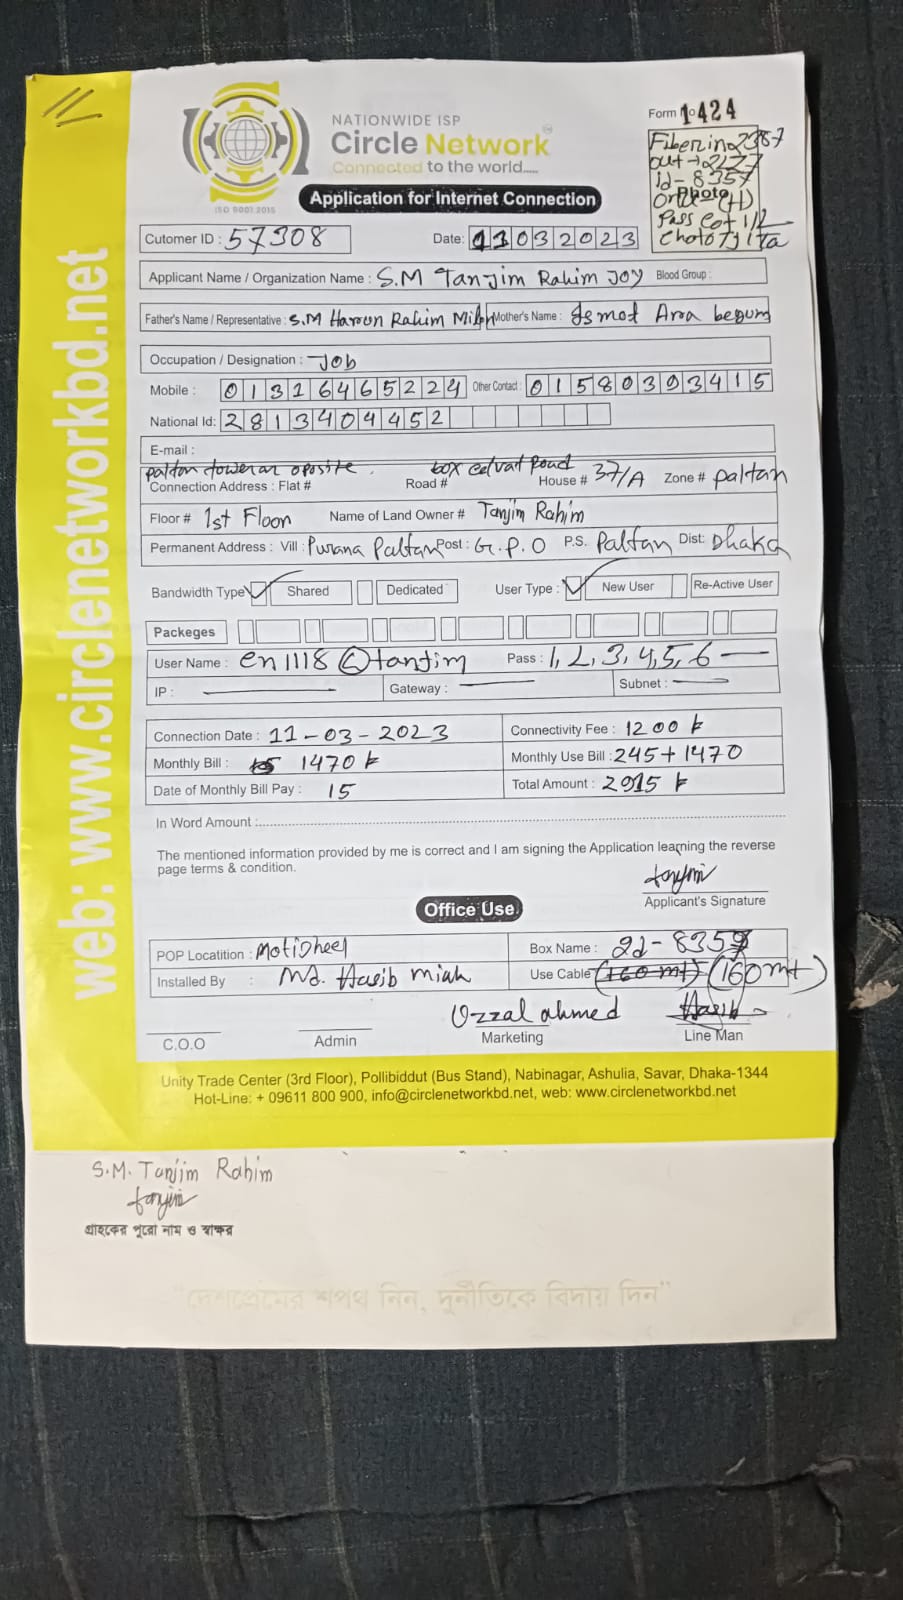 NATIONWIDE ISP
Circle Network
Connected to the world.....
ISO 9001:2015
Form 1424
Fiber in 2387
out → 2177
id - 8357
Photo
Application for Internet Connection
Cutomer ID : 57308 Date: 11032023
Applicant Name / Organization Name : S.M Tanjim Rahim Joy Blood Group :
Father's Name / Representative : S.M Haroon Rahim Milon Mother's Name : Ismot Ara begum
Occupation / Designation : Job
Mobile : 01316465224 Other Contact : 01580393415
National Id: 2813404452
E-mail :
paltan towerar oposite box calvat Road
Connection Address : Flat # Road # House # 37/A Zone # paltan
Floor # 1st Floor Name of Land Owner # Tanjim Rahim
Permanent Address : Vill : Purana Paltan Post : G.P.O P.S. Paltan Dist: Dhaka
Bandwidth Type Shared Dedicated User Type : New User Re-Active User
Packeges
User Name : en1118@tanjim Pass : 1,2,3,4,5,6
IP : Gateway : Subnet :
Connection Date : 11-03-2023 Connectivity Fee : 1200 ৳
Monthly Bill : 1470 ৳ Monthly Use Bill : 245+1470
Date of Monthly Bill Pay : 15 Total Amount : 2915 ৳
In Word Amount :
The mentioned information provided by me is correct and I am signing the Application learning the reverse
page terms & condition.
tanjim
Applicant's Signature
Office Use
POP Locatition : Motijheel Box Name : Id-8357
Installed By : Md. Hasib miah Use Cable (160 mt) (160mt)
Uzzal ahmed Hasib
C.O.O Admin Marketing Line Man
Unity Trade Center (3rd Floor), Pollibiddut (Bus Stand), Nabinagar, Ashulia, Savar, Dhaka-1344
Hot-Line: + 09611 800 900, info@circlenetworkbd.net, web: www.circlenetworkbd.net
web: www.circlenetworkbd.net
S.M. Tanjim Rahim
tanjim
গ্রাহকের পুরো নাম ও স্বাক্ষর
"দেশপ্রেমের শপথ নিন, দুর্নীতিকে বিদায় দিন"